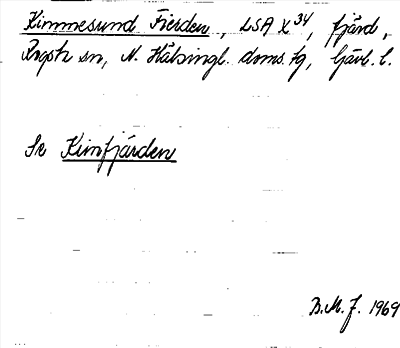 Kimmesund Fierden, LSA X 34, fjärd,
Rogsta sn, N. Hälsingl. doms. tg, Gävl. l.
Se Kimfjärden
B.M.J. 1969